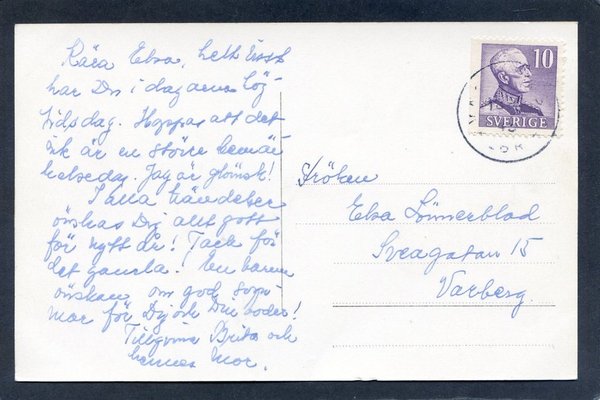 Kära Elsa, helt visst
har Du i dagarna hög-
tidsdag. Hoppas att det
är en större
helsedag. Jag är glömsk!
I alla händelser
önskas Dig allt gott
för nytt år! Tack för
det gamla! En varm
önskan om god
mor för Dig och Din
Tillgivna Brita och
hennes Mor.
10
SVERIGE
Fröken
Elsa Lönnerblad
Sveagatan 15
Varberg.